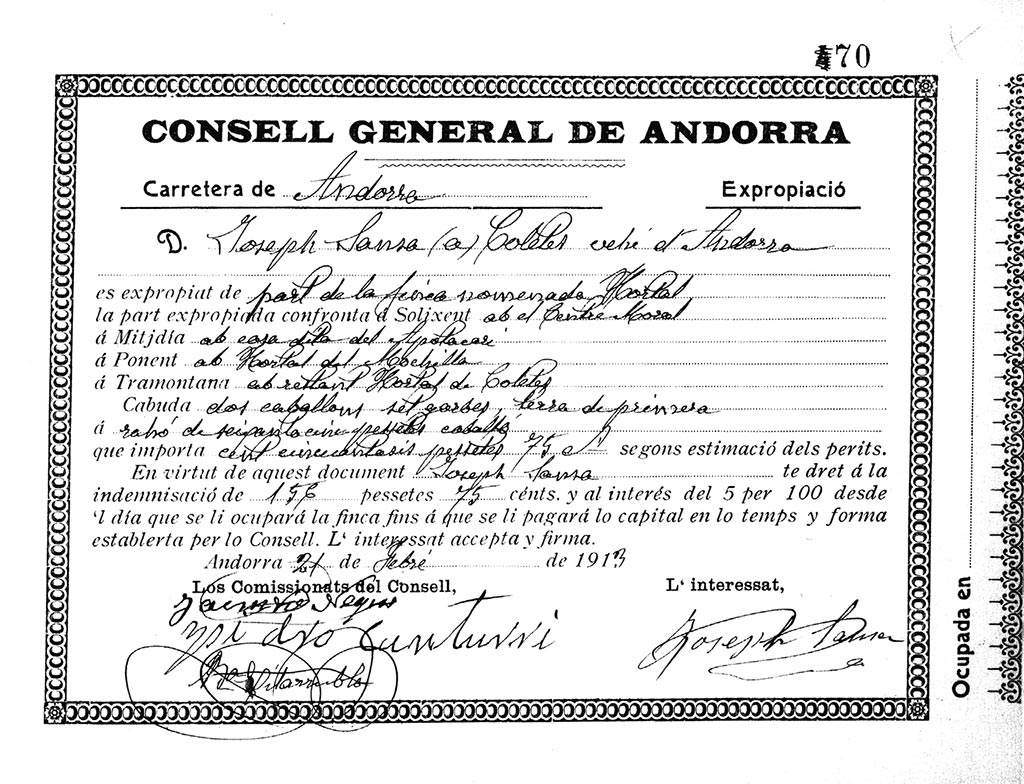 70
CONSELL GENERAL DE ANDORRA
Carretera de Andorra Expropiació
D. Joseph Sansa (a) Coletes vehí d'Andorra
es expropiat de part de la finca nomenada Hortal
la part expropiada confronta á Solixent ab el Centre Moral
á Mitjdía ab casa dita del Apotacari
á Ponent ab Hortal del
á Tramontana ab restant Hortal de Coletes
Cabuda dos caballons set garbes, terra de primera
á rahó de pessetes
que importa cent cincuantasis pessetes 75 segons estimació dels perits.
En virtut de aquest document Joseph Sansa te dret á la
indemnisació de 156 pessetes 75 cénts. y al interés del 5 per 100 desde
'l día que se li ocupará la finca fins á que se li pagará lo capital en lo temps y forma
establerta per lo Consell. L' interessat accepta y firma.
Andorra 21 de Febré de 1913
Los Comissionats del Consell, L' interessat,
Joseph Sansa
Ocupada en